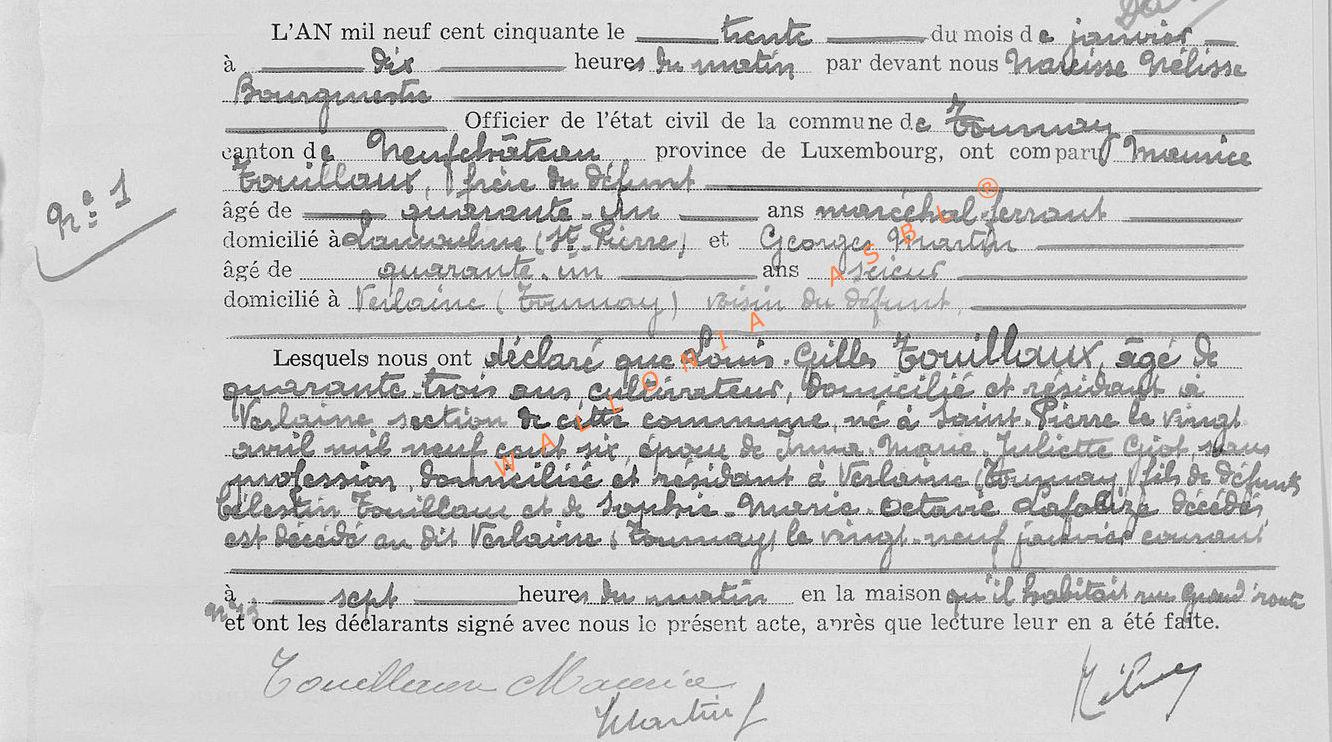 L'AN mil neuf cent cinquante le trente du mois de janvier
à dix heures du matin par devant nous Narcisse Nélisse
Bourgmestre
Officier de l'état civil de la commune de Tournay
canton de Neufchâteau province de Luxembourg, ont comparu Maurice
Touillaux, frère du défunt
N° 1
âgé de quarante-un ans maréchal-ferrant
domicilié à (St Pierre) et Georges Martin
âgé de quarante-un ans scieur
domicilié à Verlaine (Tournay) voisin du défunt,
Lesquels nous ont déclaré que Louis-Gilles Touillaux, âgé de
quarante-trois ans, cultivateur, domicilié et résidant à
Verlaine section de cette commune, né à Saint-Pierre le vingt
avril mil neuf cent six époux de Irma-Marie-Juliette Giot, sans
profession, domiciliée et résidant à Verlaine (Tournay) fils de défunts
Célestin Touillaux et de Sophie-Marie-Octavie Lafalize décédés
est décédé au dit Verlaine (Tournay) le vingt-neuf janvier courant
à sept heures du matin en la maison qu'il habitait rue Grand'route
n° 13
et ont les déclarants signé avec nous le présent acte, après que lecture leur en a été faite.
Touillaux Maurice
Martin G
WALLONIA ASBL ®